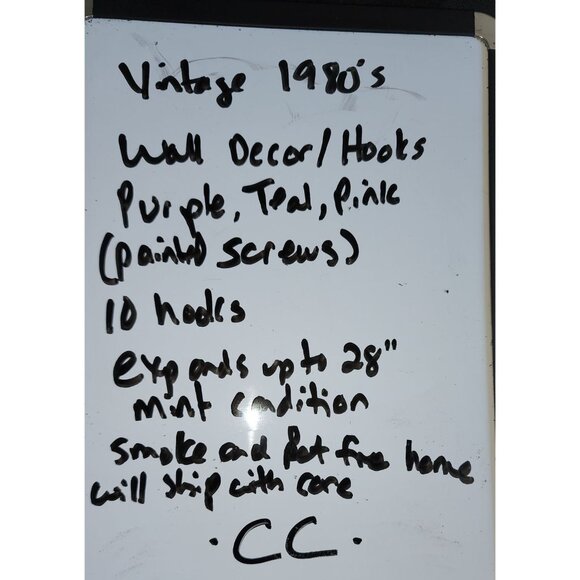 Vintage 1980's
Wall Decor/Hooks
Purple, Teal, Pink
(painted screws)
10 hooks
expands up to 28"
mint condition
smoke and pet free home
will ship with care
·CC·